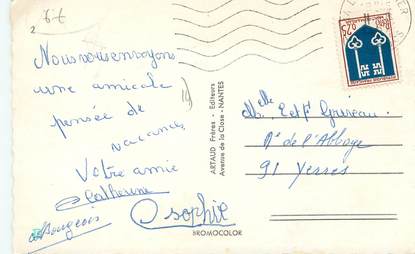 6-6
Nous vous envoyons
une amicale
pensée de
vacances
Votre amie
Catherine
Bourgeois
sophie
ARTAUD Frères - Editeurs
Avenue de la Close - NANTES
BROMOCOLOR
Melle Edf
Rte de l'Abbaye
91 Yerres